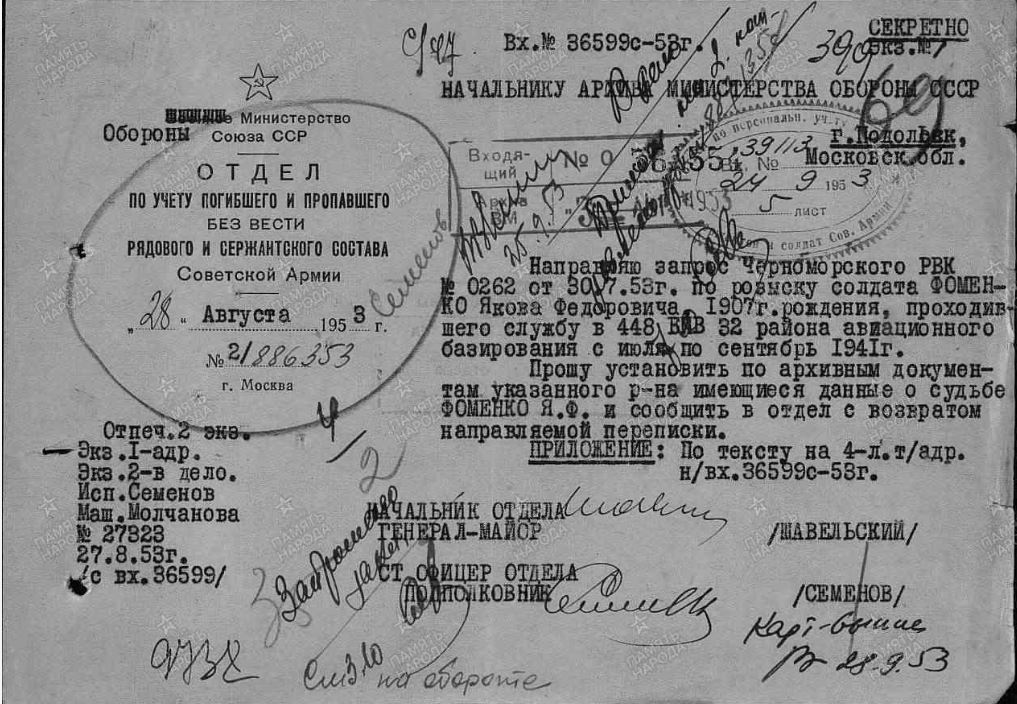 СЕКРЕТНО
Экз.№ 1
Вх.№ 36599с-53г.
НАЧАЛЬНИКУ АРХИВА МИНИСТЕРСТВА ОБОРОНЫ СССР
г.Подольск,
Московск.обл.
Министерство
Обороны Союза ССР
ОТДЕЛ
ПО УЧЕТУ ПОГИБШЕГО И ПРОПАВШЕГО
БЕЗ ВЕСТИ
РЯДОВОГО И СЕРЖАНТСКОГО СОСТАВА
Советской Армии
"28" Августа 1953 г.
№ 2/886353
г. Москва
Семенов
Входя-
щий № 0
по персональн. учету
Вх. № 39113
24 9 1953
5 лист
солдат Сов. Армии
25.9.53
Направляю запрос Черноморского РВК
№ 0262 от 30.7.53г. по розыску солдата ФОМЕН-
КО Якова Федоровича, 1907г.рождения, проходив-
шего службу в 448 БАБ 32 района авиационного
базирования с июля по сентябрь 1941г.
Прошу установить по архивным докумен-
там указанного р-на имеющиеся данные о судьбе
ФОМЕНКО Я.Ф. и сообщить в отдел с возвратом
направляемой переписки.
ПРИЛОЖЕНИЕ: По тексту на 4-л.т/адр.
н/вх.36599с-53г.
Отпеч.2 экз.
Экз.I-адр.
Экз.2-в дело.
Исп.Семенов
Маш.Молчанова
№ 27323
27.8.53г.
/с вх.36599/
НАЧАЛЬНИК ОТДЕЛА
ГЕНЕРАЛ-МАЙОР /ШАВЕЛЬСКИЙ/
СТ.ОФИЦЕР ОТДЕЛА
ПОДПОЛКОВНИК /СЕМЕНОВ/
28.9.53
См 3.10 на обороте
ПАМЯТЬ НАРОДА